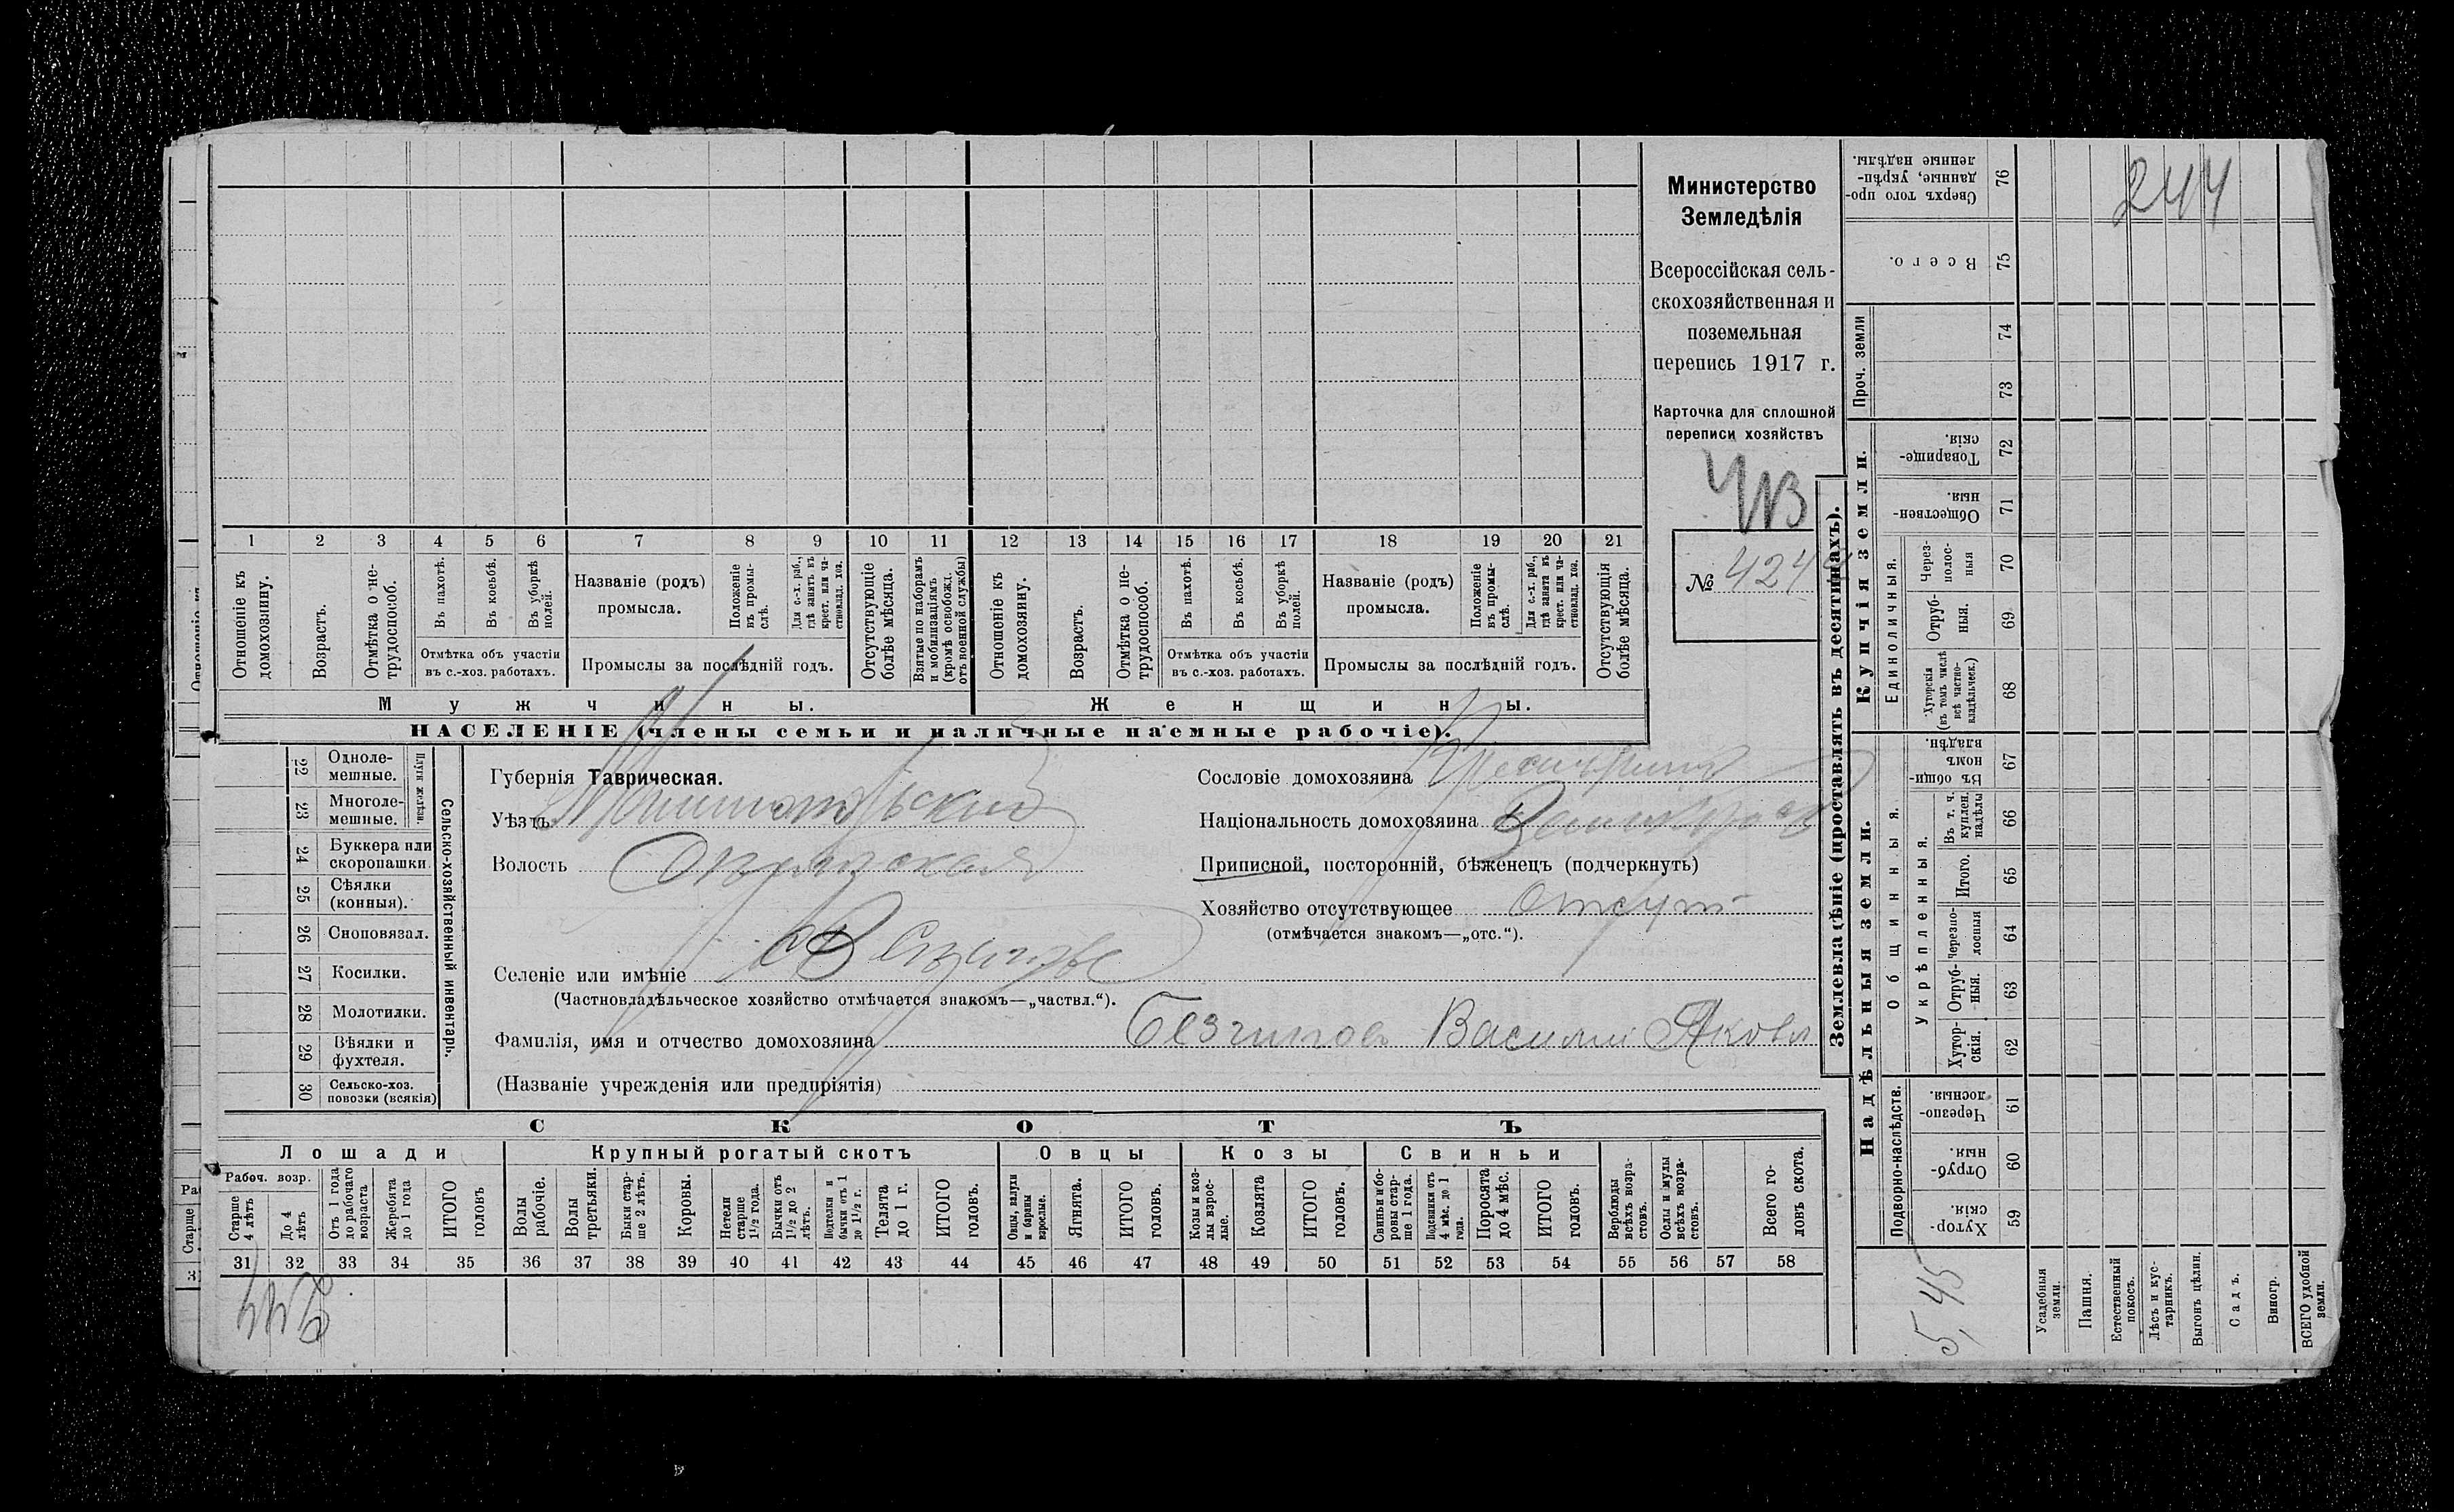 Министерство
Земледѣлія
Всероссійская сель-
скохозяйственная и
поземельная
перепись 1917 г.
Карточка для сплошной
переписи хозяйствъ
№ 424
244
1 2 3 4 5 6 7 8 9 10 11 12 13 14 15 16 17 18 19 20 21
Отношеніе къ домохозяину.
Возрастъ.
Отмѣтка о не-трудоспособ.
Въ пахотѣ.
Въ косьбѣ.
Въ уборкѣ полей.
Отмѣтка объ участіи
въ с.-хоз. работахъ.
Названіе (родъ)
промысла.
Положеніе въ промы-слѣ.
Для с.-х. раб., гдѣ занятъ въ крест. или ча-стновлад. хоз.
Промыслы за послѣдній годъ.
Отсутствующіе болѣе мѣсяца.
Взятые по наборамъ и мобилизаціямъ (кромѣ освобожд. отъ военной службы)
Отношеніе къ домохозяину.
Возрастъ.
Отмѣтка о не-трудоспособ.
Въ пахотѣ.
Въ косьбѣ.
Въ уборкѣ полей.
Отмѣтка объ участіи
въ с.-хоз. работахъ.
Названіе (родъ)
промысла.
Положеніе въ промы-слѣ.
Для с.-х. раб., гдѣ занята въ крест. или ча-стновлад. хоз.
Промыслы за послѣдній годъ.
Отсутствующія болѣе мѣсяца.
Мужчины.
Женщины.
НАСЕЛЕНІЕ (члены семьи и наличные наемные рабочіе).
22 Одноле-мешные.
23 Многоле-мешные.
Плуги желѣзн.
24 Буккера или скоропашки
25 Сѣялки (конныя).
26 Сноповязал.
27 Косилки.
28 Молотилки.
29 Вѣялки и фухтеля.
30 Сельско-хоз. повозки (всякія)
Сельско-хозяйственный инвентарь.
Губернія Таврическая.
Уѣздъ
Волость
Селеніе или имѣніе
(Частновладѣльческое хозяйство отмѣчается знакомъ—„частвл.“).
Сословіе домохозяина
Національность домохозяина
Приписной, посторонній, бѣженецъ (подчеркнуть)
Хозяйство отсутствующее отсут
(отмѣчается знакомъ—„отс.“).
Фамилія, имя и отчество домохозяина Василій Яковл
(Названіе учрежденія или предпріятія)
СКОТЪ
Лошади
Крупный рогатый скотъ
Овцы
Козы
Свиньи
Рабоч. возр.
Старше 4 лѣтъ
До 4 лѣтъ
Отъ 1 года до рабочаго возраста
Жеребята до 1 года
ИТОГО головъ
Волы рабочіе.
Волы третьяки.
Быки стар-ше 2 лѣтъ.
Коровы.
Нетели старше 1½ года.
Бычки отъ 1½ до 2 лѣтъ.
Подтелки и бычки отъ 1 до 1½ г.
Телята до 1 г.
ИТОГО головъ.
Овцы, валухи и бараны взрослые.
Ягнята.
ИТОГО головъ.
Козы и коз-лы взрос-лые.
Козлята
ИТОГО головъ.
Свиньи и бо-ровы стар-ше 1 года.
Подсвинки отъ 4 мѣс. до 1 года.
Поросята до 4 мѣс.
ИТОГО головъ.
Верблюды всѣхъ возра-стовъ.
Ослы и мулы всѣхъ возра-стовъ.
Всего го-ловъ скота.
31 32 33 34 35 36 37 38 39 40 41 42 43 44 45 46 47 48 49 50 51 52 53 54 55 56 57 58
244
Землевладѣніе (проставлять въ десятинахъ).
Сверхъ того про-данные, укрѣп-ленные надѣлы. 76
Всего. 75
Проч. земли
74
73
Купчія земли.
Товарище-скія. 72
Обществен-ныя. 71
Единоличныя.
Через-полос-ныя 70
Отруб-ныя. 69
Хуторскія (въ томъ числѣ всѣ частно-владѣльческ.) 68
Надѣльныя земли.
Общинныя.
Въ общи-номъ владѣн. 67
Укрѣпленныя.
Въ т. ч. куплен. надѣлы 66
Итого. 65
Черезпо-лосныя 64
Отруб-ныя. 63
Хутор-скія. 62
Подворно-наслѣдств.
Черезпо-лосныя. 61
Отруб-ныя. 60
Хутор-скія. 59
5,45
Усадебныя земли.
Пашня.
Естественный покосъ.
Лѣсъ и кус-тарникъ.
Выгонъ цѣлин.
Садъ.
Виногр.
ВСЕГО удобной земли.